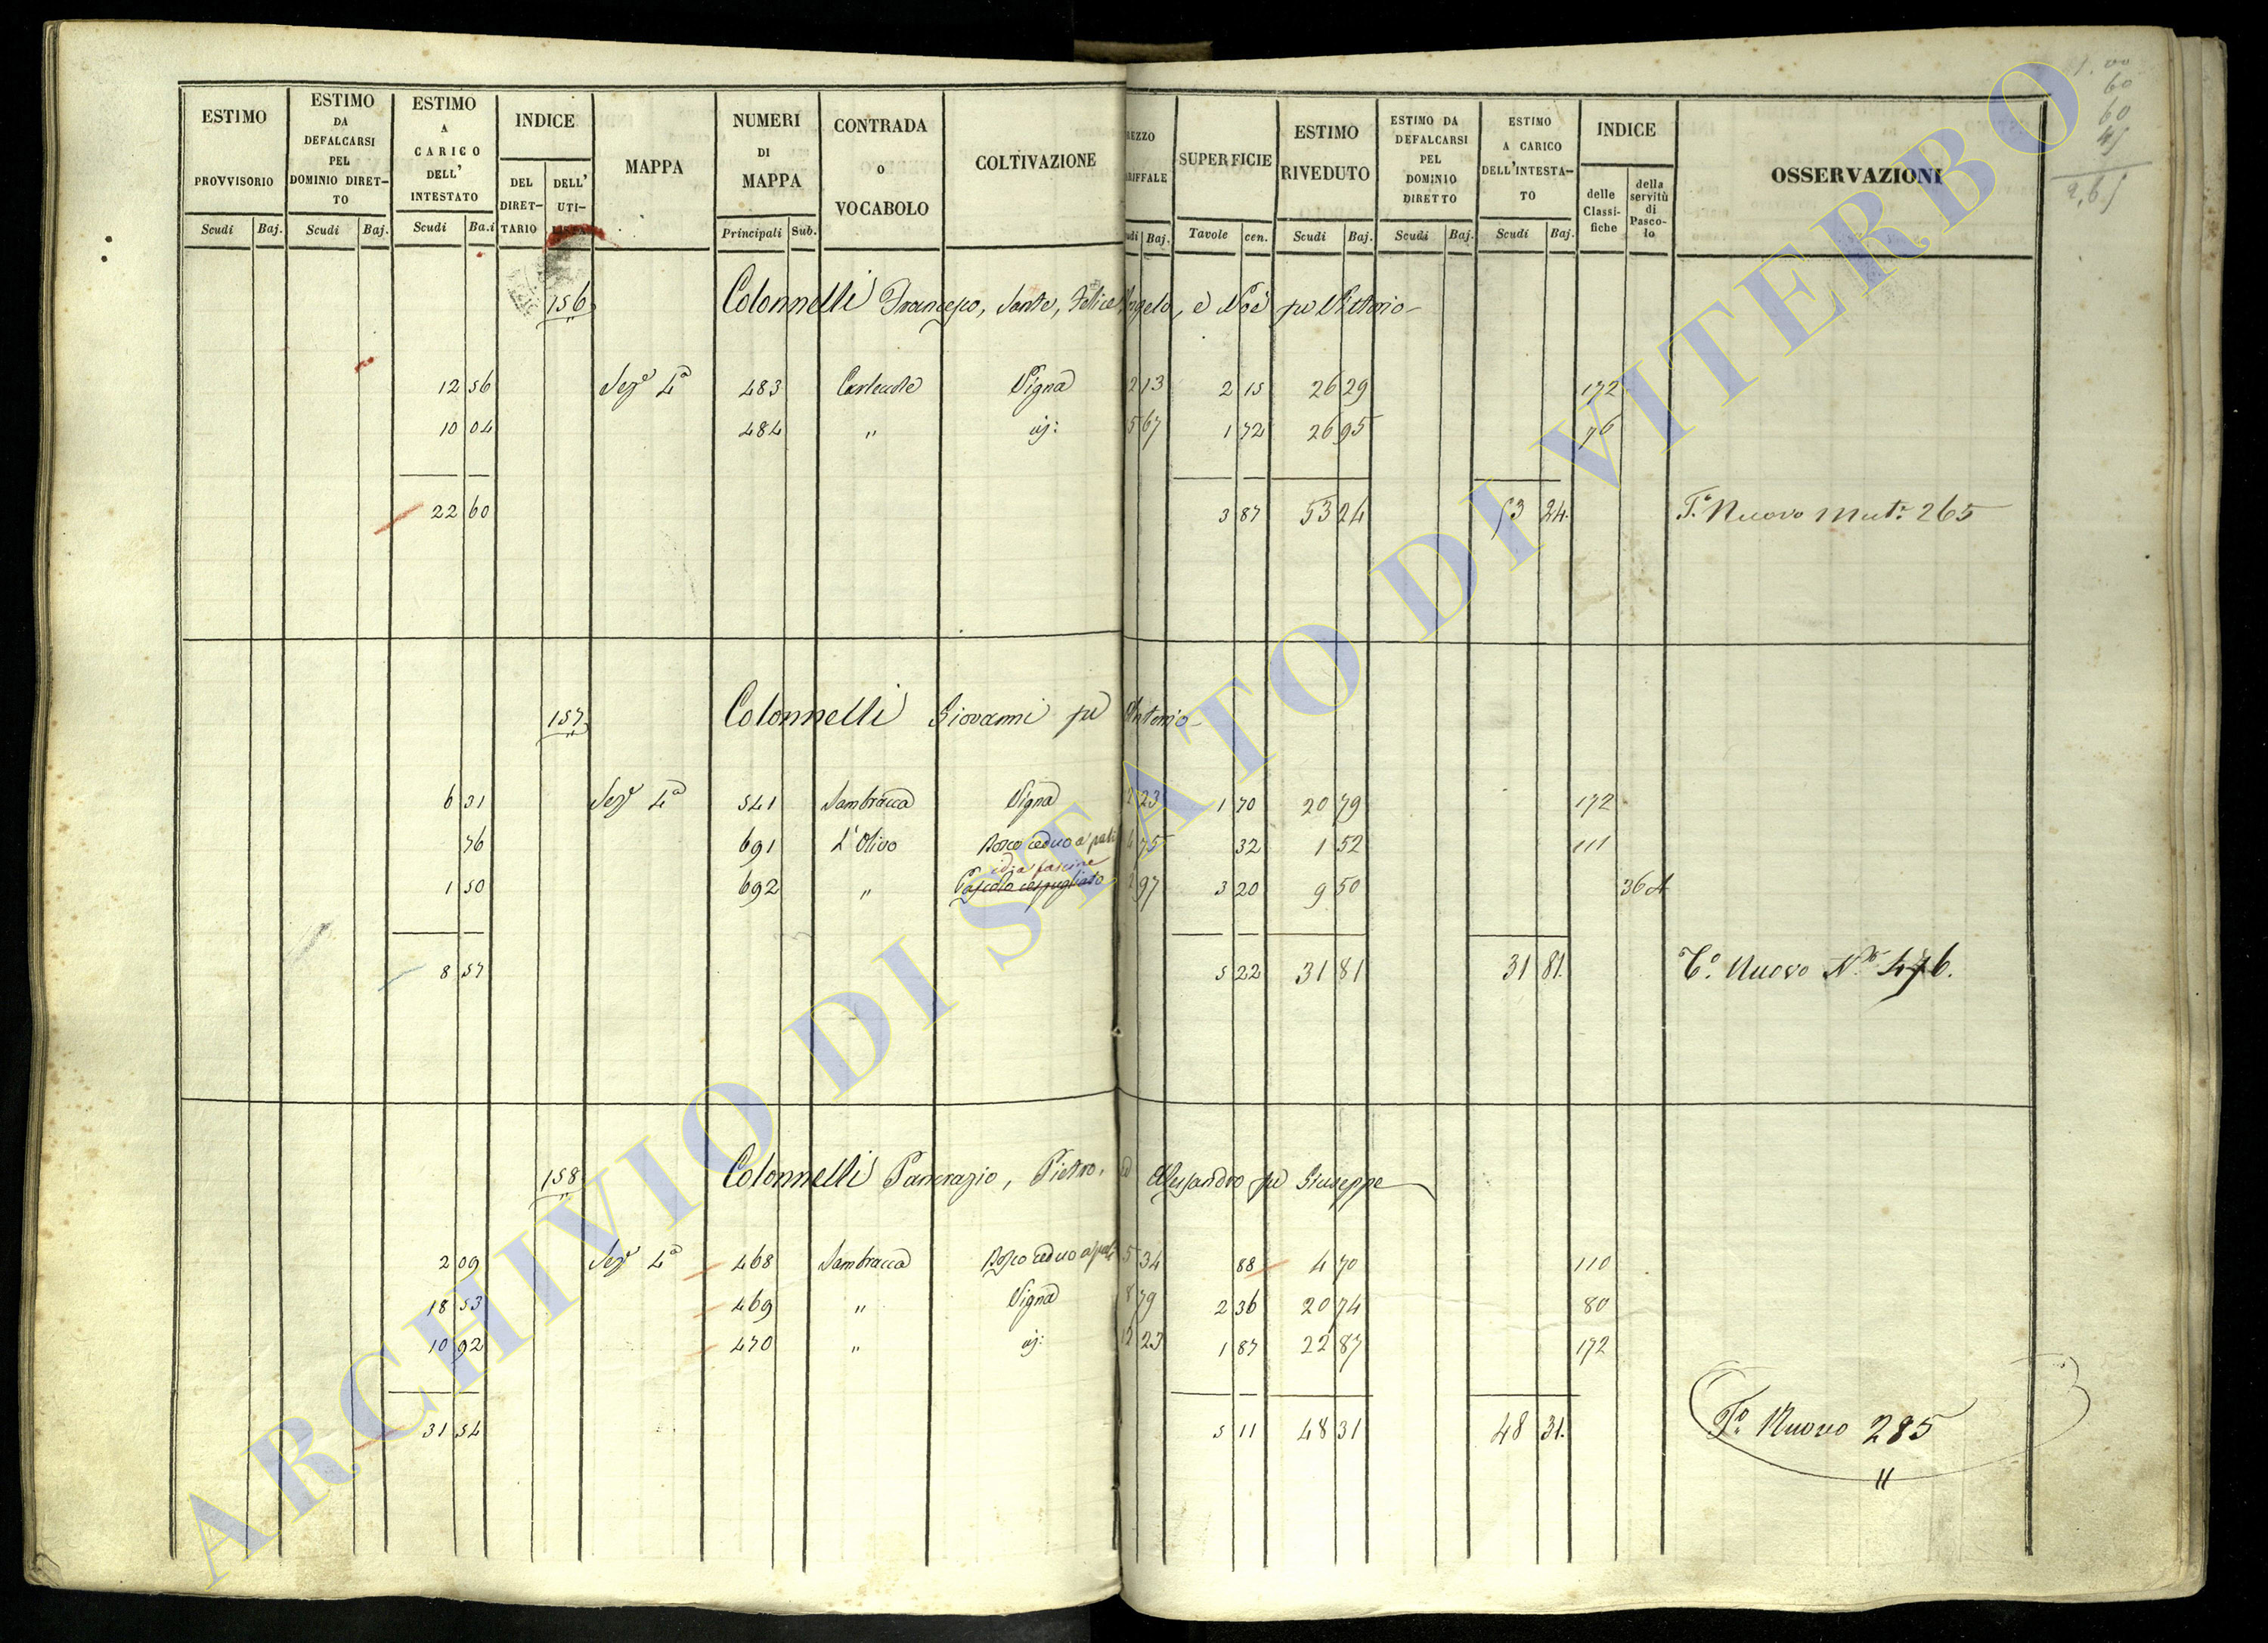 ESTIMO PROVVISORIO
ESTIMO DA DEFALCARSI PEL DOMINIO DIRET- TO
ESTIMO A CARICO DELL' INTESTATO
INDICE
DEL DIRET- TARIO
DELL' UTI-
MAPPA
NUMERI DI MAPPA
CONTRADA O VOCABOLO
COLTIVAZIONE
REZZO RIFFALE
SUPERFICIE
ESTIMO RIVEDUTO
ESTIMO DA DEFALCARSI PEL DOMINIO DIRETTO
ESTIMO A CARICO DELL'INTESTA- TO
INDICE
delle Classi- fiche
della servitù di Pasco- lo
OSSERVAZIONI
Scudi Baj. Scudi Baj. Scudi Ba.i Principali Sub. udi Baj. Tavole cen. Scudi Baj. Scudi Baj. Scudi Baj.
1.00
60
60
45
2,65
156 Colonnelli Francesco, Sante, Felice Angelo, e Noè fu Vittorio
12 56 Sez.e 4a 483 Vigna 2 13 2 15 26 29 172
10 04 484 " id: 5 67 1 72 26 95 76
22 60 3 87 53 24 53 24. T.o Nuovo Mut.a 265
157 Colonnelli Giovanni fu Antonio
6 31 Sez.e 4a 541 Sambracca Vigna 2 23 1 70 20 79 172
76 691 L'Olivo Bosco ceduo a pali 4 75 32 1 52 111
id a fascine
1 50 692 " Pascolo cespugliato 2 97 3 20 9 50 36 A
8 57 5 22 31 81 31 81. T.o Nuovo N.o 476.
158 Colonnelli Pancrazio, Pietro, ed Alessandro fu Giuseppe
2 09 Sez.e 4a 468 Sambracca Bosco ceduo a pali 5 34 88 4 70 110
18 53 469 " Vigna 8 79 2 36 20 74 80
10 92 470 " id: 12 23 1 87 22 87 172
31 54 5 11 48 31 48 31. T.o Nuovo 285
"
ARCHIVIO DI STATO DI VITERBO